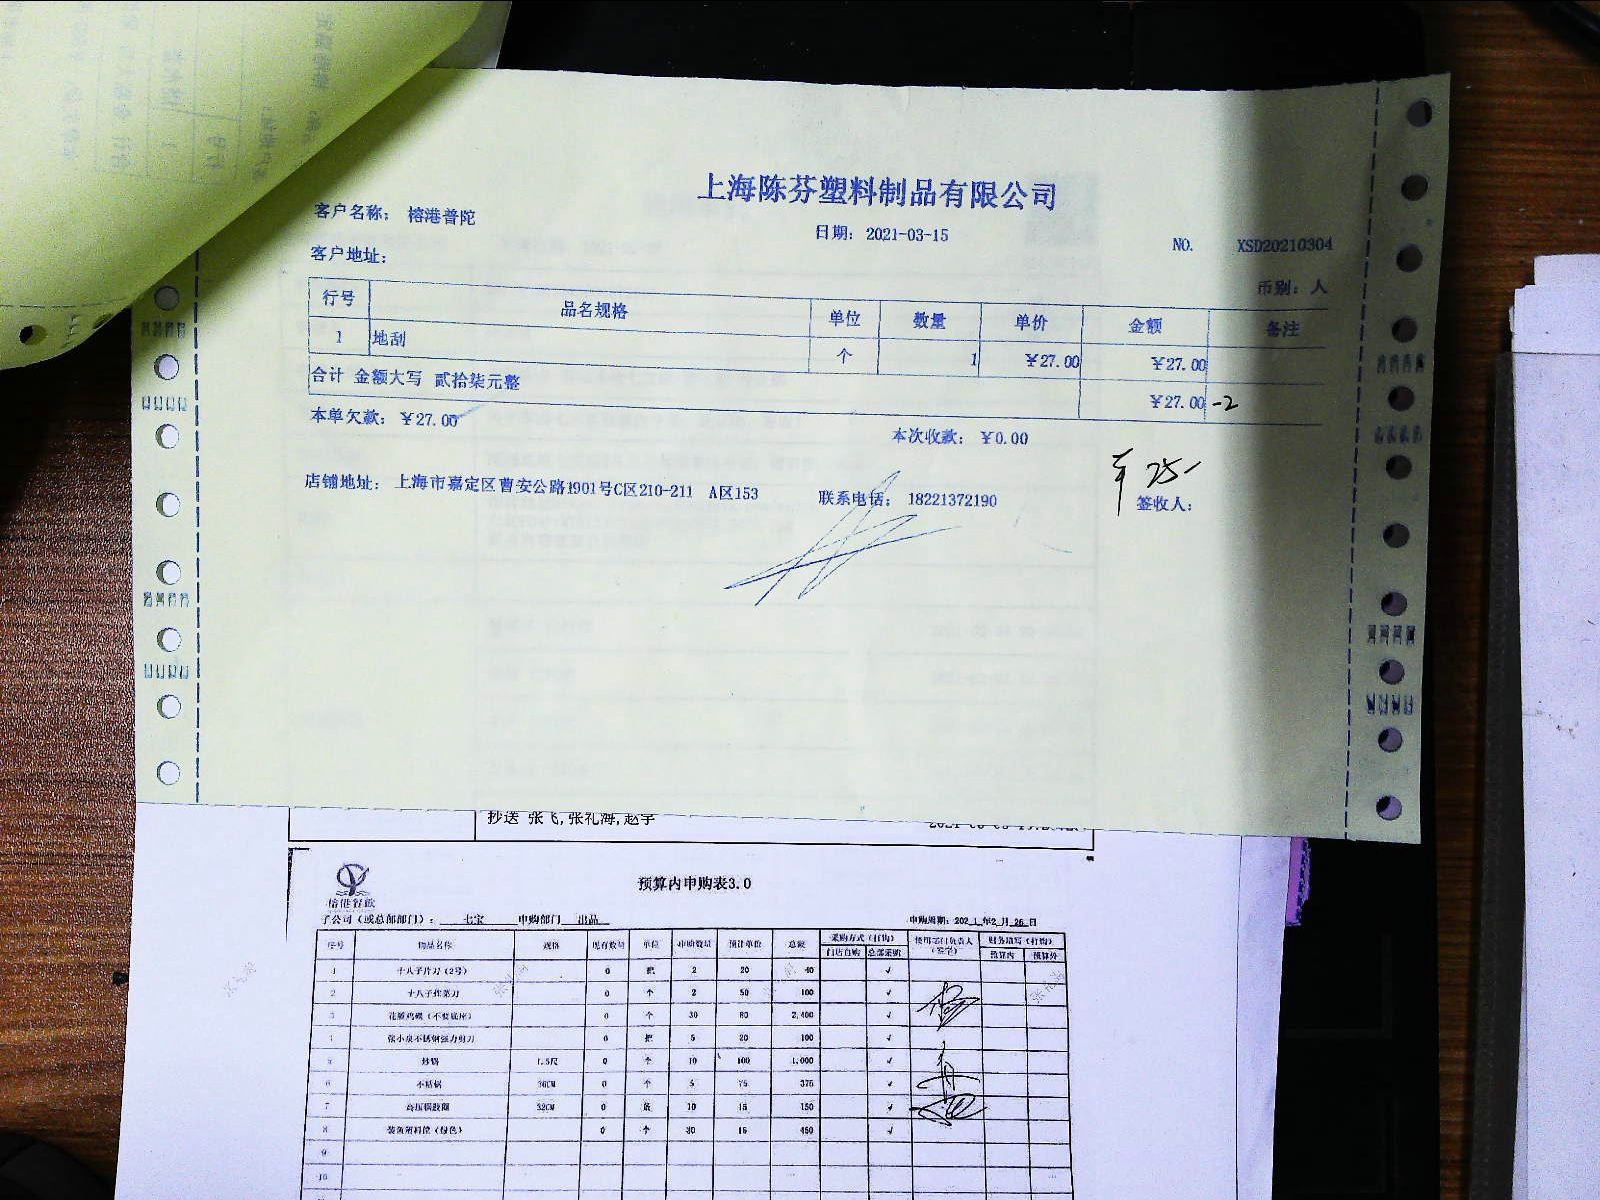 上海陈芬塑料制品有限公司
客户名称： 榕港普陀
日期： 2021-03-15
NO. XSD20210304
客户地址：
币别： 人
行号 品名规格 单位 数量 单价 金额 备注
1 地刮 个 1 ￥27.00 ￥27.00
合计 金额大写 贰拾柒元整 ￥27.00 -2
本单欠款： ￥27.00 本次收款： ￥0.00
25-
店铺地址： 上海市嘉定区曹安公路1901号C区210-211 A区153 联系电话： 18221372190 签收人：
抄送 张飞,张礼海,赵宇
预算内申购表3.0
榕港餐饮
子公司（或总部部门）： 七宝 申购部门 出品 申购周期：2021年2月26日
序号 物品名称 规格 现存数量 单位 申购数量 预计单价 总额 采购方式（打钩） 使用部门负责人（签字） 财务填写（打钩）
门店自购 总部采购 预算内 预算外
1 十八子片刀（2号） 0 把 2 20 40 √
2 十八子 0 个 2 50 100 √
3 （不要底座） 0 个 30 80 2,400 √
4 张小泉不锈钢强力剪刀 0 把 5 20 100 √
5 炒锅 1.5尺 0 个 10 100 1,000 √
6 不粘锅 36CM 0 个 5 75 375 √
7 32CM 0 10 15 150 √
8 （绿色） 0 个 30 15 450 √
9
10